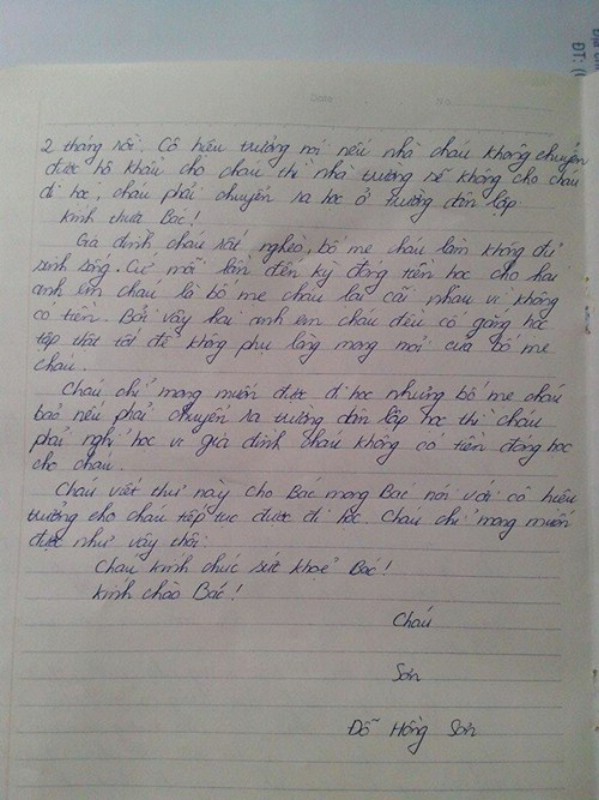 ĐT: (
Date No.
2 tháng rồi. Cô hiệu trưởng nói nếu nhà cháu không chuyển
được hộ khẩu cho cháu thì nhà trường sẽ không cho cháu
đi học, cháu phải chuyển ra học ở trường dân lập.
Kính thưa Bác!
Gia đình cháu rất nghèo, bố mẹ cháu làm không đủ
sinh sống. Cứ mỗi lần đến kỳ đóng tiền học cho hai
anh em cháu là bố mẹ cháu lại cãi nhau vì không
có tiền. Bởi vậy hai anh em cháu đều cố gắng học
tập thật tốt để không phụ lòng mong mỏi của bố mẹ
cháu.
Cháu chỉ mong muốn được đi học nhưng bố mẹ cháu
bảo nếu phải chuyển ra trường dân lập học thì cháu
phải nghỉ học vì gia đình cháu không có tiền đóng học
cho cháu.
Cháu viết thư này cho Bác mong Bác nói với cô hiệu
trưởng cho cháu tiếp tục được đi học. Cháu chỉ mong muốn
được như vậy thôi.
Cháu kính chúc sức khoẻ Bác!
Kính chào Bác!
Cháu
Sơn
Đỗ Hồng Sơn